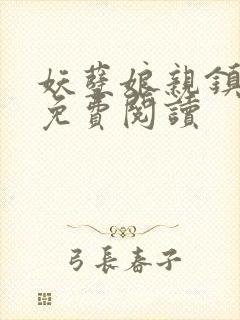 妖孽娘親鎮
免費閱讀
弓長春子